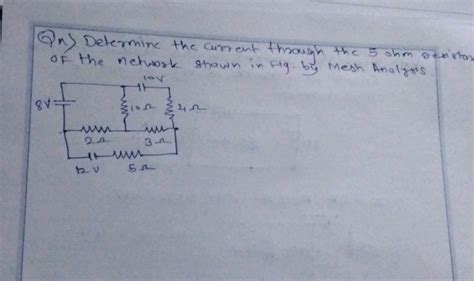 Qn) Determine the current through the 5 ohm resistor
of the network shown in Fig. by Mesh Analysis.
10V
8V
10Ω
4Ω
2Ω
3Ω
12V
5Ω